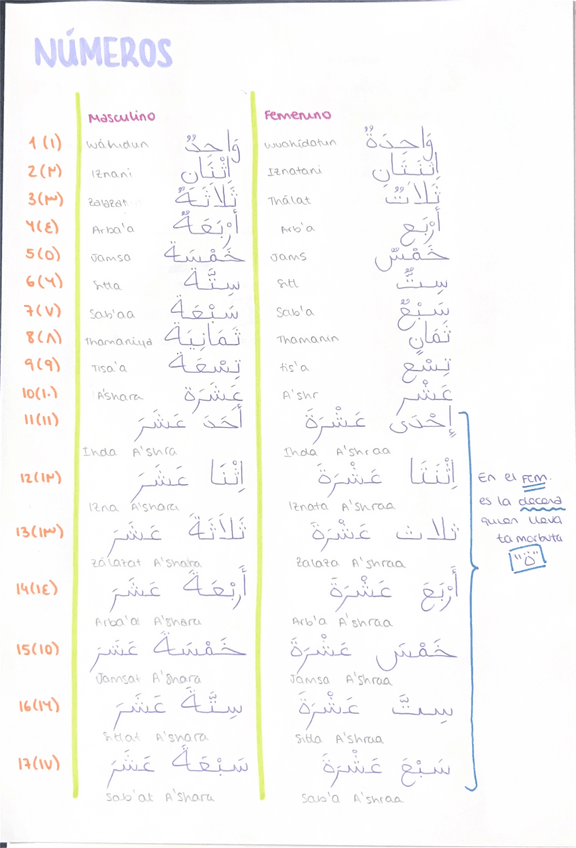 NÚMEROS
Masculino Femenino
1 (١) wáhidun وَاحِدٌ wuahidatun وَاحِدَةٌ
2 (٢) Iznani اِثْنَانِ Iznatani اِثْنَتَانِ
3 (٣) Zalazat ثَلَاثَةٌ Thálat ثَلَاثٌ
4 (٤) Arba'a أَرْبَعَةٌ Arb'a أَرْبَع
5 (٥) Jamsa خَمْسَة Jams خَمْسٌ
6 (٦) Sitta سِتَّة Sitt سِتٌّ
7 (٧) Sab'aa سَبْعَة Sab'a سَبْعٌ
8 (٨) Thamaniya ثَمَانِيَة Thamanin ثَمَانٍ
9 (٩) Tisa'a تِسْعَة tis'a تِسْع
10 (١٠) A'shara عَشَرَة A'shr عَشْر
11 (١١) أَحَدَ عَشَرَ إِحْدَى عَشْرَةَ
Ihda A'shra Ihda A'shraa
12 (١٢) اِثْنَا عَشَرَ اِثْنَتَا عَشْرَةَ
Izna A'shara Iznata A'shraa
13 (١٣) ثَلَاثَةَ عَشَرَ ثلاث عَشْرَةَ
Zalazat A'shara Zalaza A'shraa
14 (١٤) أَرْبَعَةَ عَشَرَ أَرْبَعَ عَشْرَةَ
Arba'at A'shara Arb'a A'shraa
15 (١٥) خَمْسَةَ عَشَرَ خَمْسَ عَشْرَةَ
Jamsat A'shara Jamsa A'shraa
16 (١٦) سِتَّةَ عَشَرَ سِتَّ عَشْرَةَ
Sittat A'shara Sitta A'shraa
17 (١٧) سَبْعَةَ عَشَرَ سَبْعَ عَشْرَةَ
Sab'at A'shara Sab'a A'shraa
En el FEM.
es la decena
quien lleva
ta marbuta
"ة"